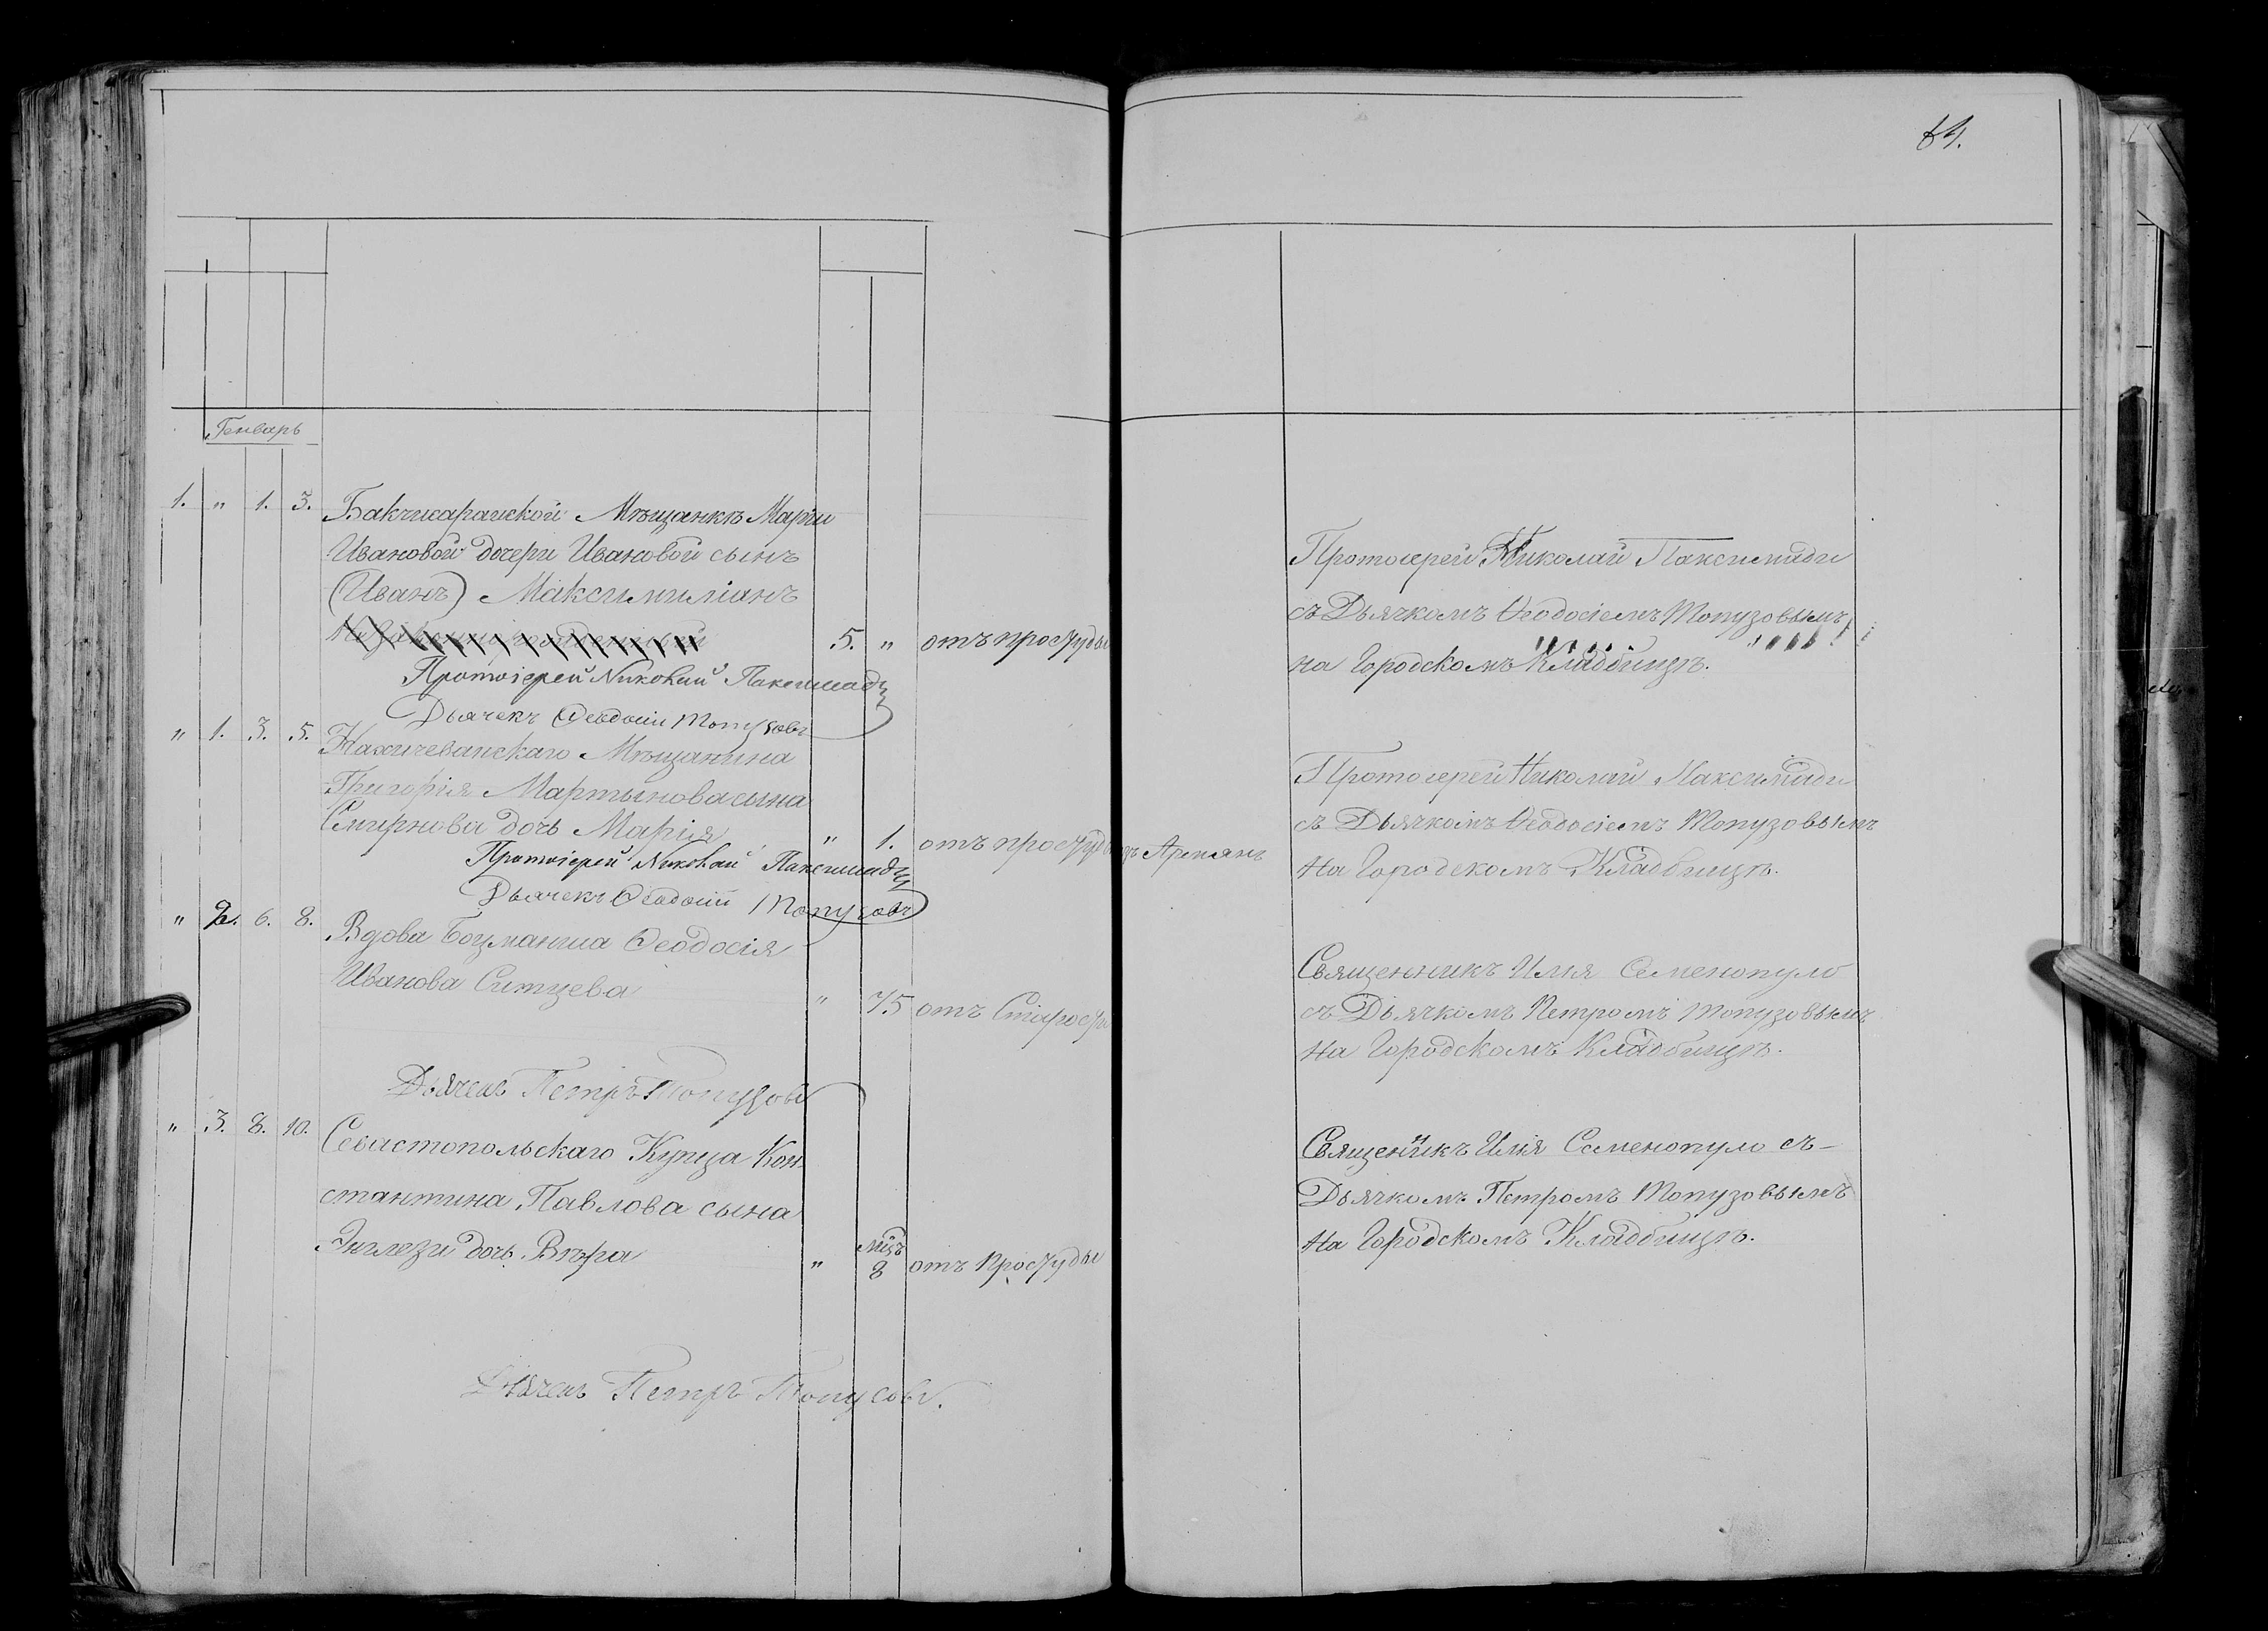 Генварь
1. „ 1. 3. Бакчисарайской Мѣщанкѣ Маріи
Ивановой дочери Ивановой сынъ
(Иванъ) Максимиліанъ
5. „ отъ простуды
Протоіерей Николай Паксимади
Дьячекъ Ѳеодосій Топузовъ
„ 1. 3. 5. Нахичеванскаго Мѣщанина
Григорія Мартынова сына
Смирнова дочь Марія „ 1. отъ простуды изъ Армянъ
Протоіерей Николай Паксимади
Дьячекъ Ѳеодосій Топузовъ
„ 2. 6. 8. Вдова Боцманша Ѳеодосія
Иванова Ситцева „ 75 отъ Старости
Дьячекъ Петръ Топузовъ
„ 3. 8. 10. Севастопольскаго Купца Кон
стантина Павлова сына
Энглези дочь Вѣра „ мцъ 8 отъ простуды
Дьячекъ Петръ Топусовъ.
64.
Протоіерей Николай Паксимади
съ Дьячкомъ Ѳеодосіемъ Топузовымъ
на Городскомъ Кладбищѣ.
Протоіерей Николай Паксимади
съ Дьячкомъ Ѳеодосіемъ Топузовымъ
на Городскомъ Кладбищѣ.
Священникъ Илія Семенопуло
съ Дьячкомъ Петромъ Топузовымъ
на Городскомъ Кладбищѣ.
Священникъ Илія Семенопуло съ-
Дьячкомъ Петромъ Топузовымъ
на Городскомъ Кладбищѣ.